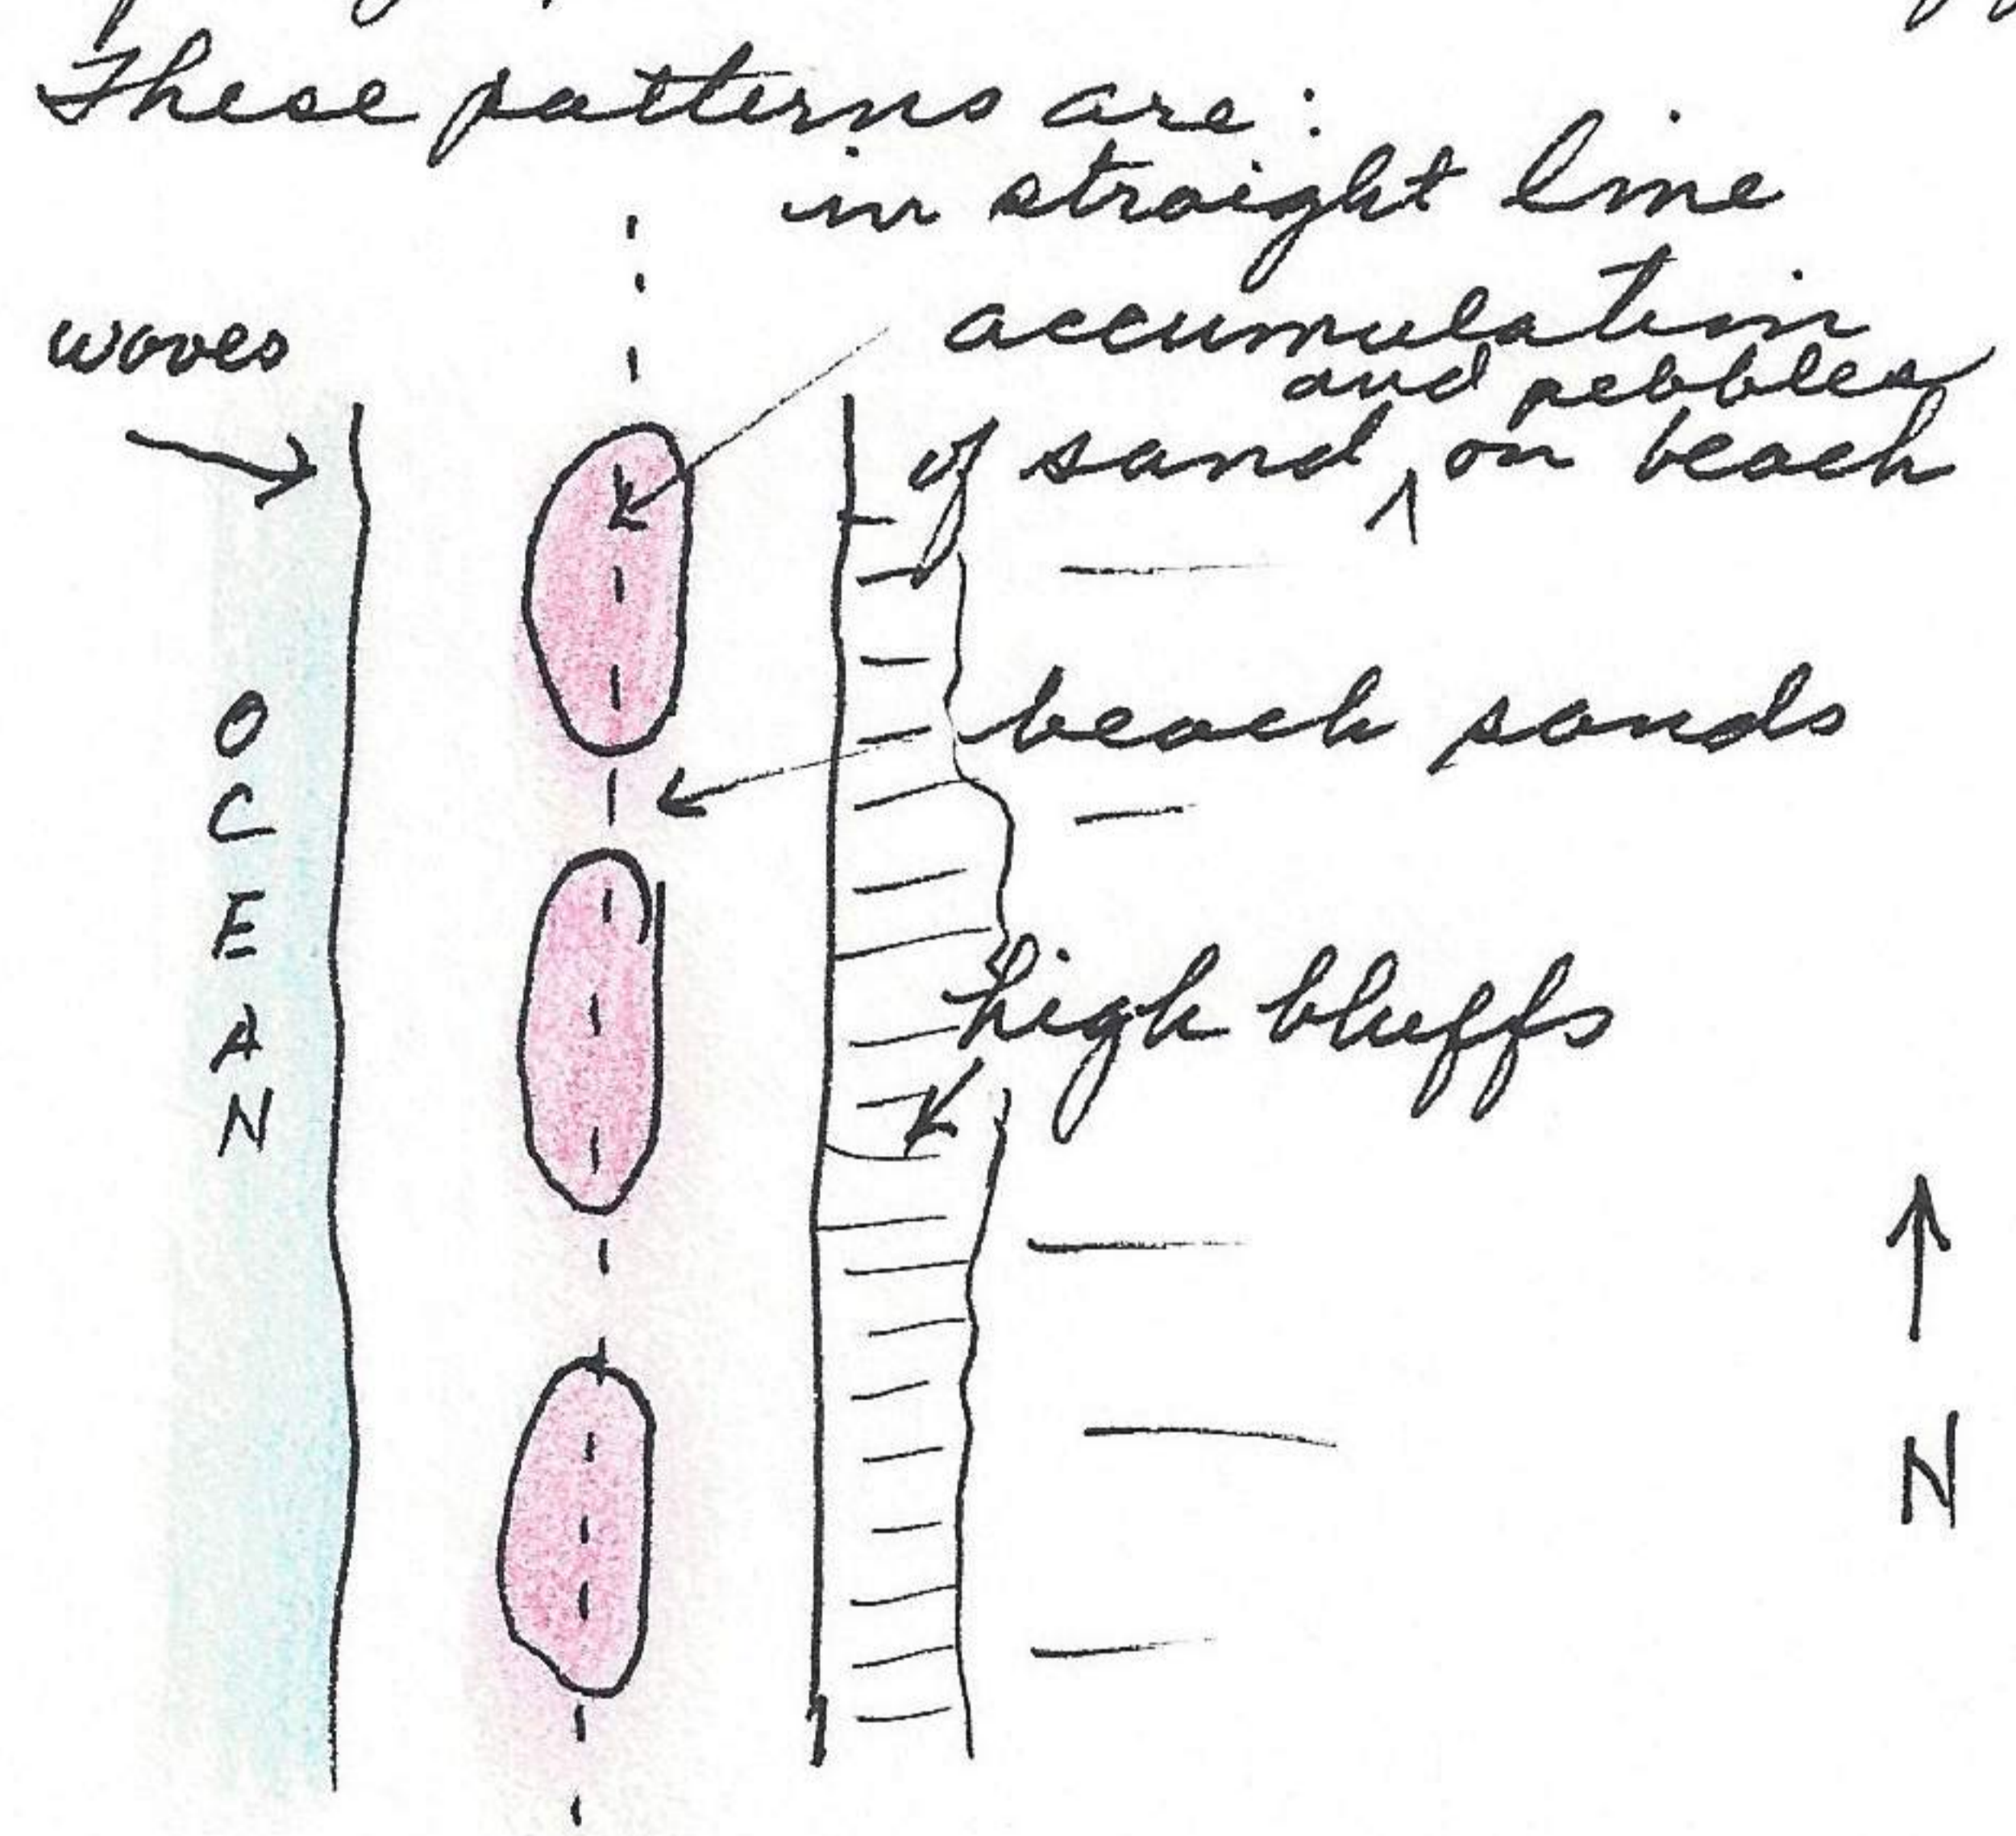 These patterns are:
in straight line
waves
accumulation
and pebbles
of sand ^ on beach
OCEAN
beach sands
high bluffs
N